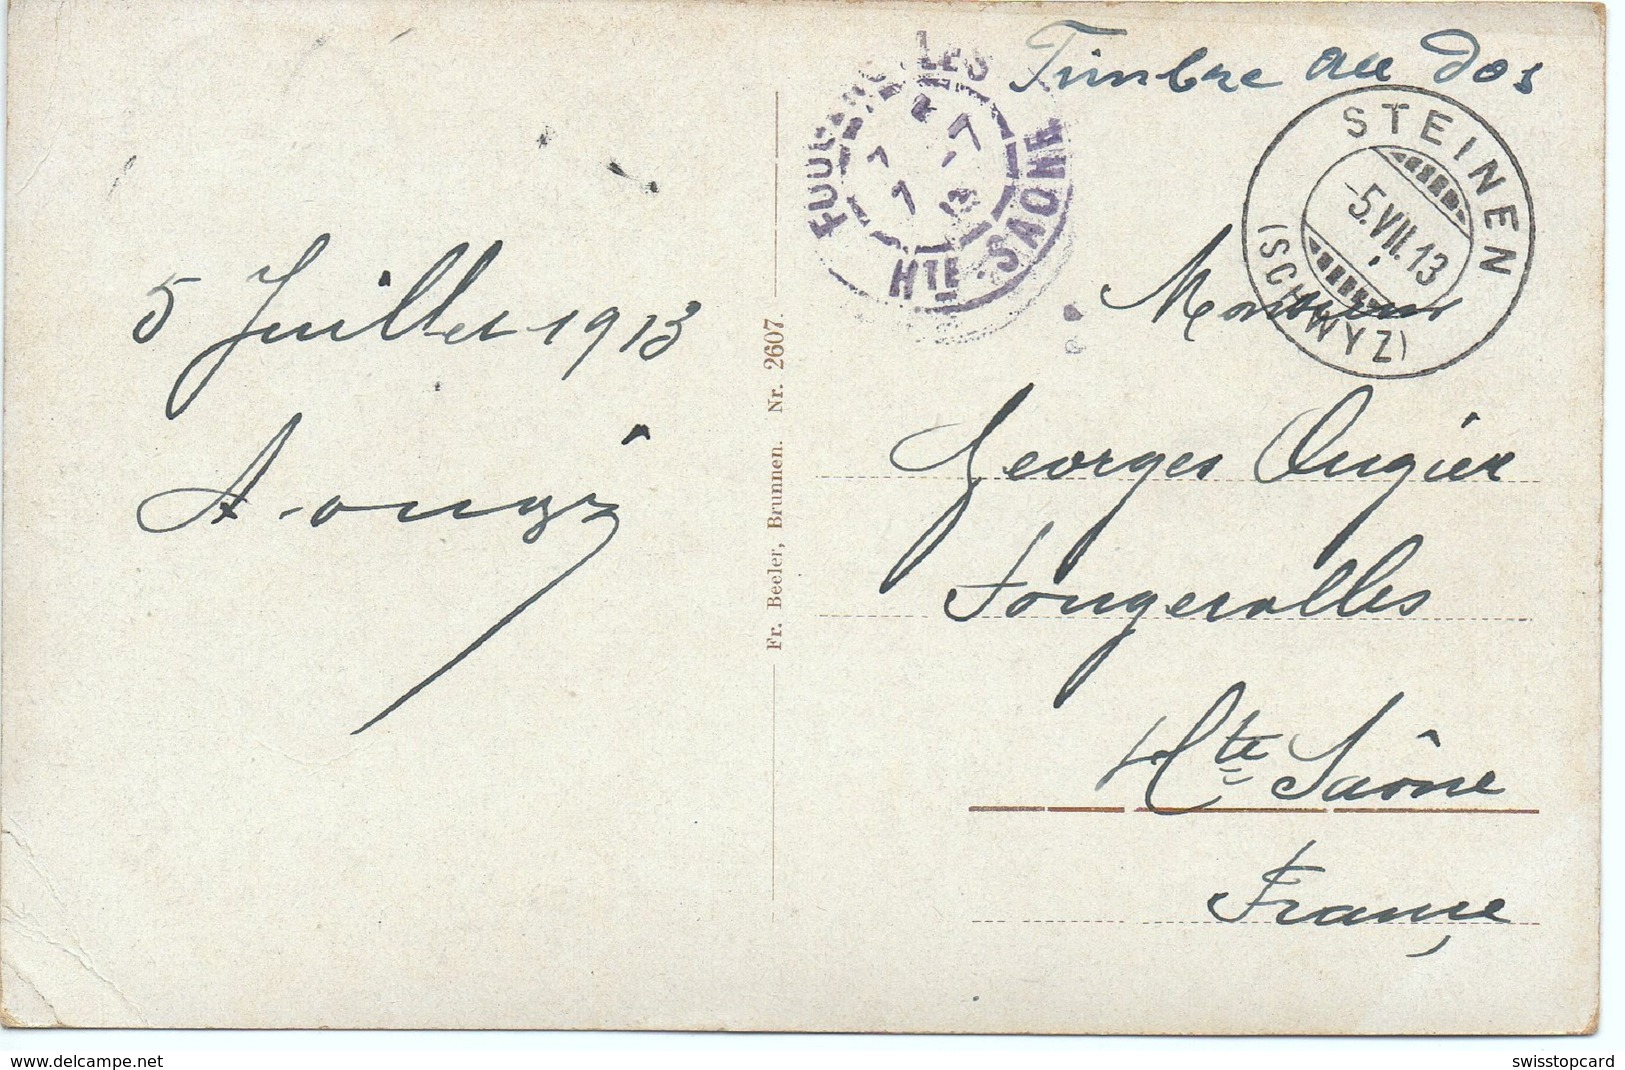 Timbre au dos
FOUGEROLLES
7 7
13
HTE-SAONE
STEINEN
-5.VII.13
(SCHWYZ)
5 Juillet 1913
Monsieur
Georges Ougier
Fougerolles
Hte Saône
France
Fr. Beeler, Brunnen. Nr. 2607.
www.delcampe.net
swisstopcard